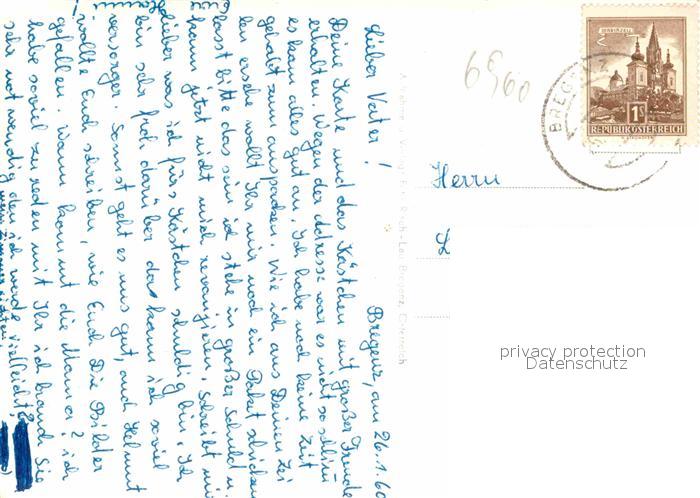 Bregenz, am 26.1.60
Lieber Vater!
Deine Karte und das Kästchen mit großer Freude
erhalten. Wegen der Adresse war es nicht so schlimm
es kam alles gut an. Ich habe noch keine Zeit
gehabt zum auspacken. Wie ich aus Deinen Zei
len ersehe wollt Ihr mir noch ein Paket schicken
lasst bitte das sein ich stehe in großer Schuld u.
kann jetzt nicht mich revanzieren. Schreibt mir
lieber was ich fürs Kästchen schuldig bin. Ich
bin sehr froh darüber da kann ich soviel
versorgen. Sonnst geht es uns gut, auch Helmut
wollte Euch schreiben, wie Euch Die Bilder
gefallen. Wann kommt die Mama? ich
habe soviel zu reden mit Ihr ich brauch Sie
sehr notwendig den ich werde vielleicht
Herrn
L
6 60
MARIAZELL
1S
REPUBLIK ÖSTERREICH
BREGENZ
privacy protection
Datenschutz